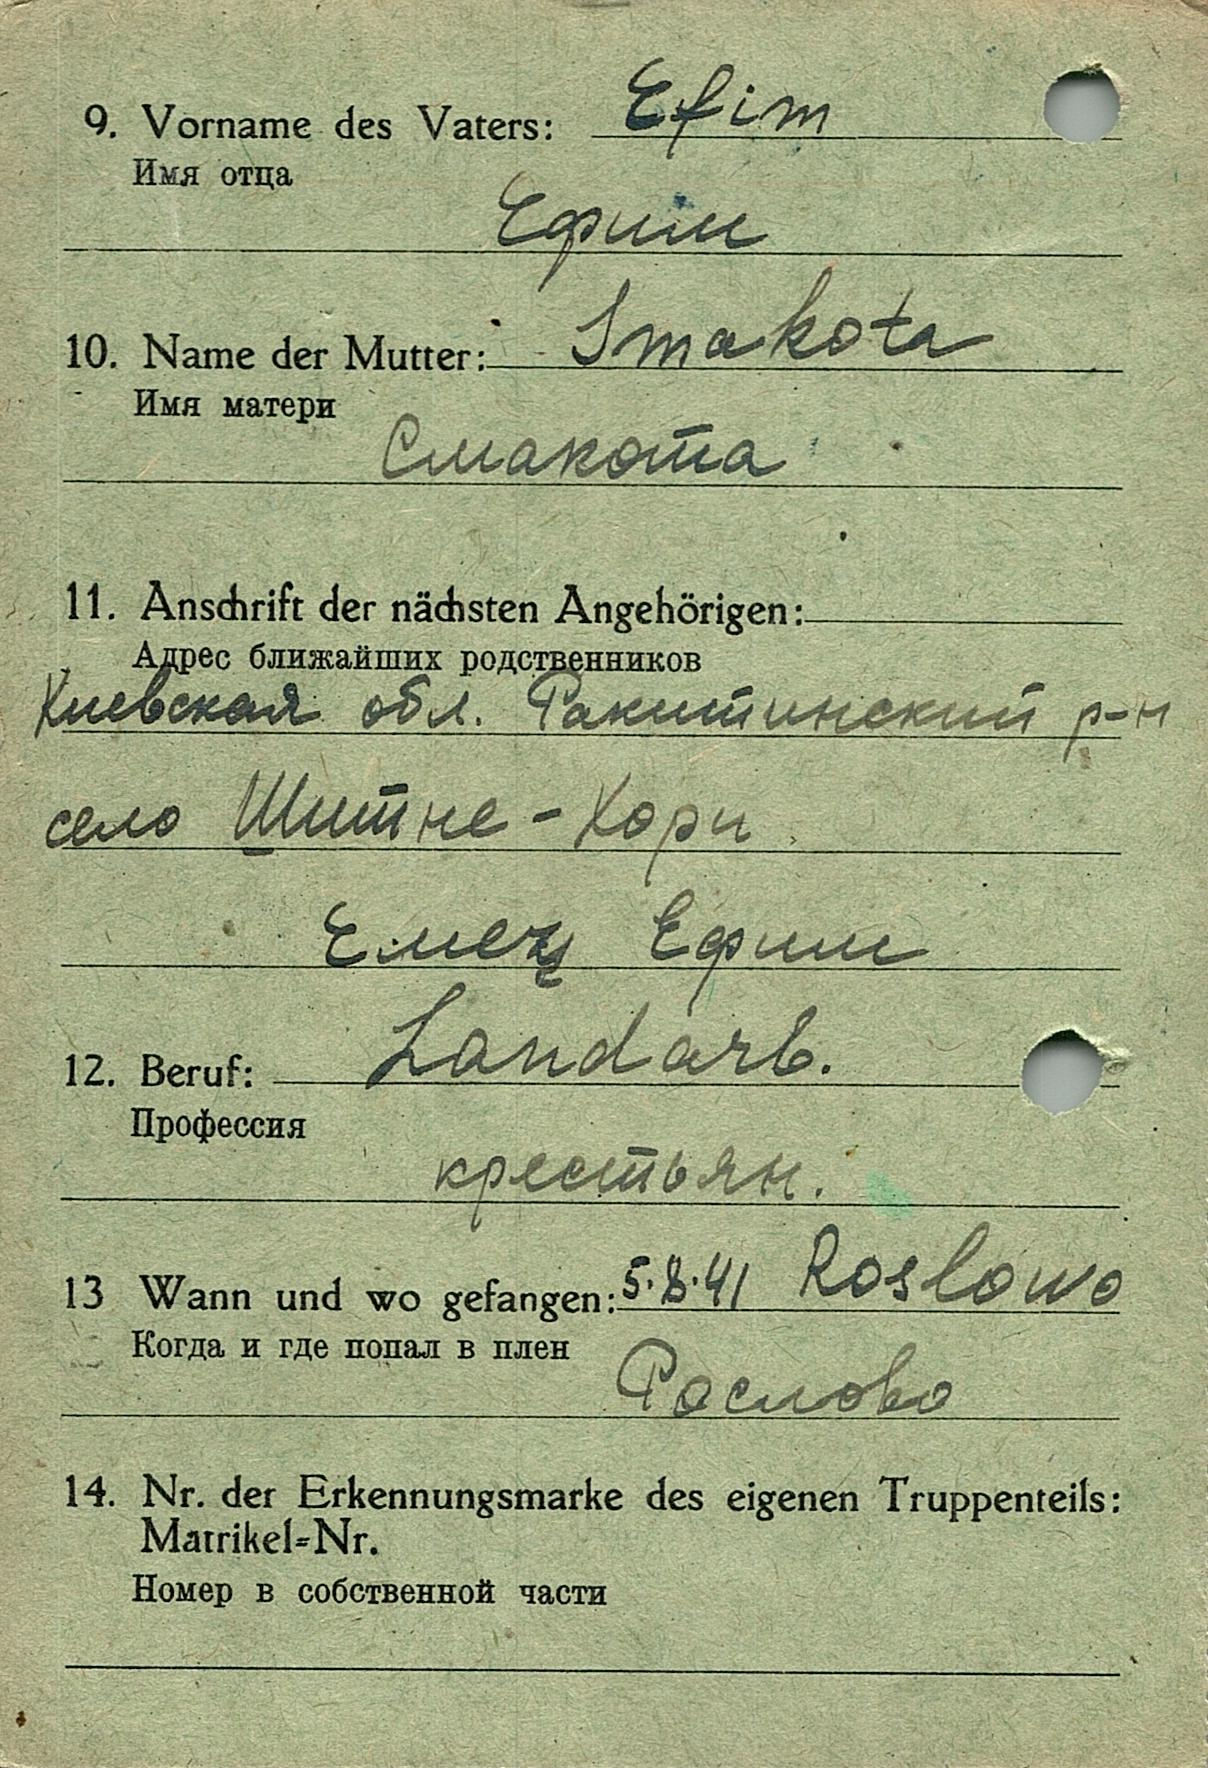 9. Vorname des Vaters: Efim
Имя отца
Ефим
10. Name der Mutter: Smakota
Имя матери
Смакота
11. Anschrift der nächsten Angehörigen:
Адрес ближайших родственников
Киевская обл. Ракитинский р-н
село Шитне-Хори
Емец Ефим
12. Beruf: Landarb.
Профессия
крестьян.
13 Wann und wo gefangen: 5.8.41 Roslowo
Когда и где попал в плен
Рослово
14. Nr. der Erkennungsmarke des eigenen Truppenteils:
Matrikel=Nr.
Номер в собственной части